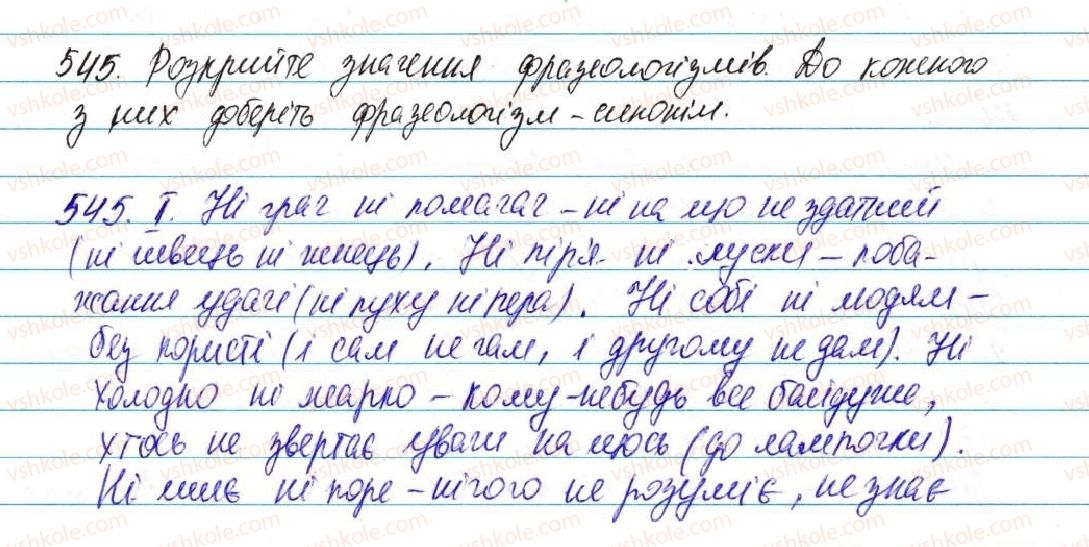 545. Розкрийте значення фразеологізмів. До кожного
з них доберіть фразеологізм-синонім.
545. I. Ні грач ні помагач - ні на що не здатний
(ні швець ні жнець). Ні пір'я ні луски - поба-
жання удачі (ні пуху ні пера). Ні собі ні людям -
без користі (і сам не гам, і другому не дам). Ні
холодно ні жарко - кому-небудь все байдуже,
хтось не звертає уваги на щось (до лампочки).
Ні миє ні поре - нічого не розуміє, не знає